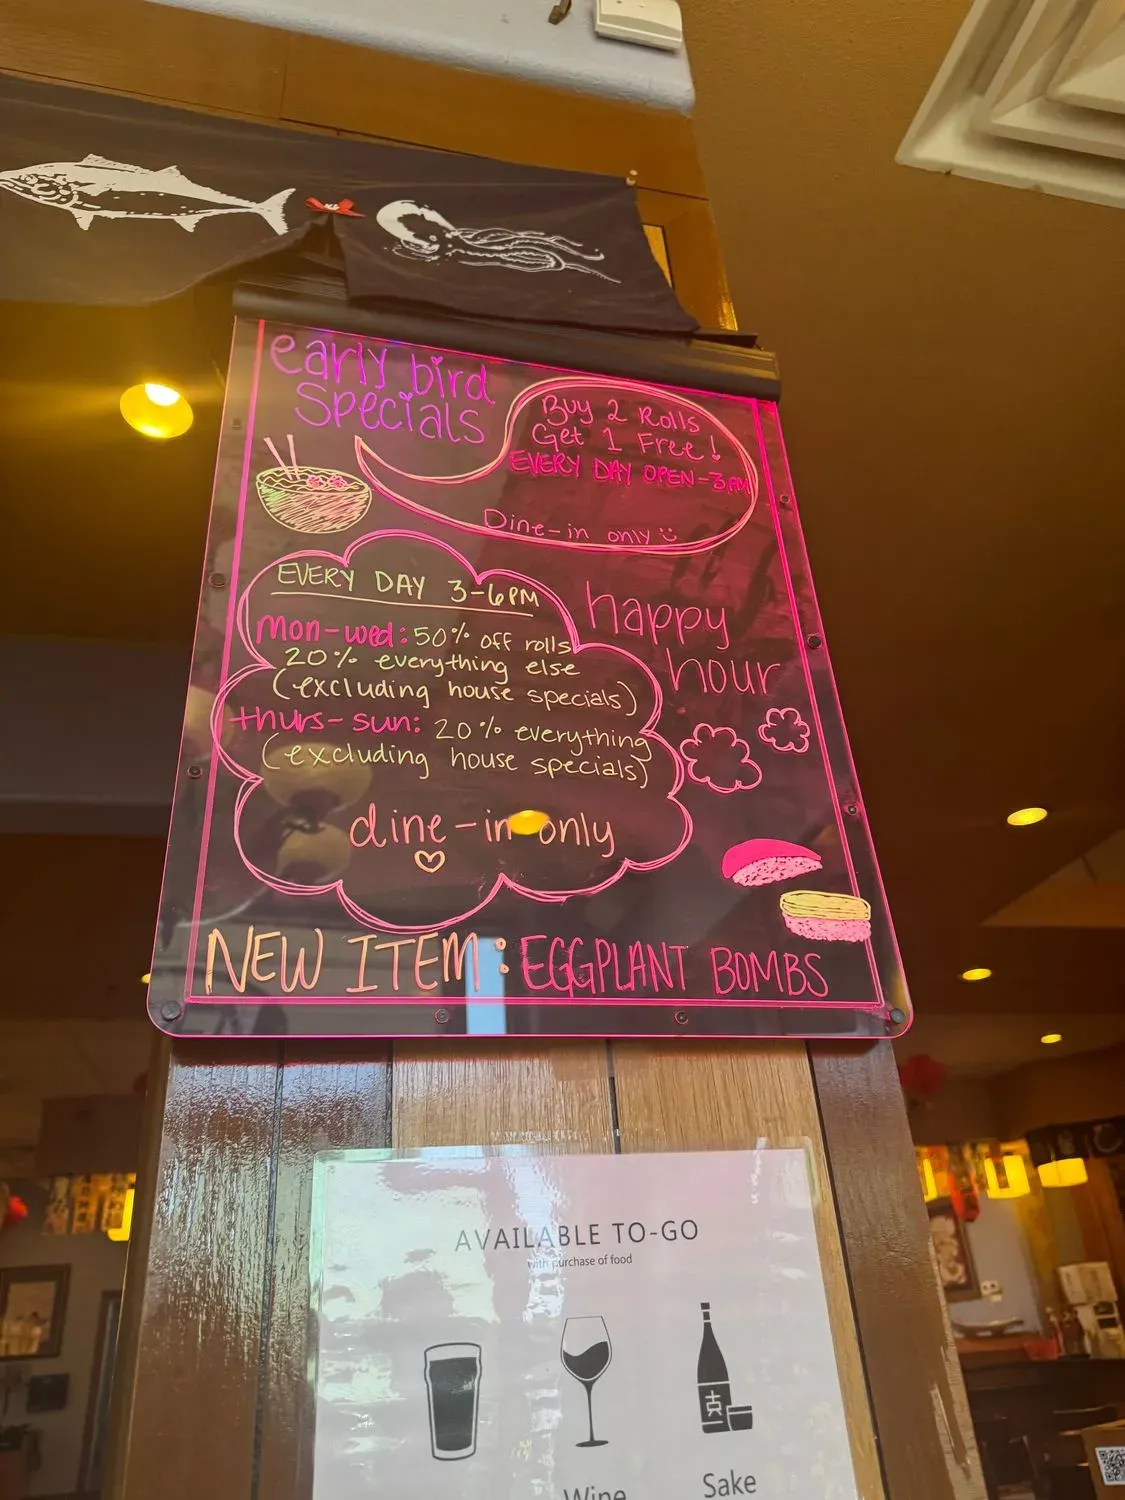 early bird
Specials
Buy 2 Rolls
Get 1 Free!
EVERY DAY OPEN-3PM
Dine-in only
EVERY DAY 3-6PM
mon-wed: 50% off rolls
20% everything else
(excluding house specials)
thurs-sun: 20% everything
(excluding house specials)
dine-in only
happy
hour
NEW ITEM: EGGPLANT BOMBS
AVAILABLE TO-GO
with purchase of food
Wine
Sake